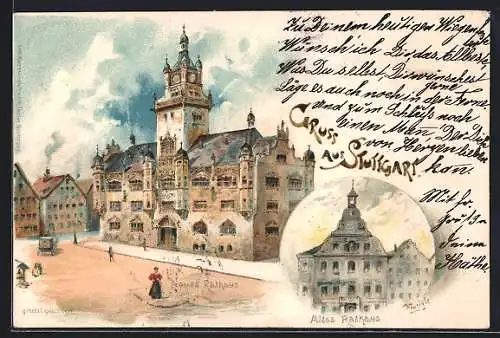 Zu Deinem heutigen Wiegenfeste
Wünsch ich Dir, das Allerbeste
Was Du selbst Dir wünschest gerne
Läge es auch noch in der Ferne
und zum Schluß noch
einen Mann, Der Dich
von Herzen lieben
kan.
Mit fr.
Grüßen
Deine
Käthe
Gruss
aus Stuttgart.
Neues Rathaus
Altes Rathaus